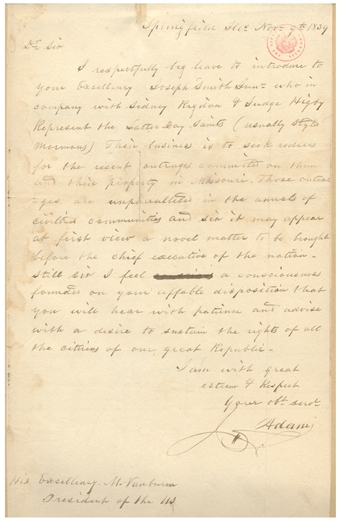 Springfield Ills. Nov. 9th 1839
Dr Sir
I respectfully beg leave to introduce to
your Excellency Joseph Smith Junr. who in
company with Sidney Rigdon & Judge Higby
Represent the Latter Day Saints (usually Styled
Mormons) Their business is to seek redress
for the recent outrages committed on them
and their property in Missouri. Those outra-
ges are unparalleled in the annals of
civilized communities and sir it may appear
at first view a novel matter to be brought
before the chief executive of the nation-
Still sir I feel a consciousness
founded on your affable disposition that
you will hear with patience and advise
with a desire to sustain the rights of all
the citizens of our great Republic-
I am with great
esteem & Respect
Your obt. servt.
Adams
His Excellency. M. Vanburen
President of the US